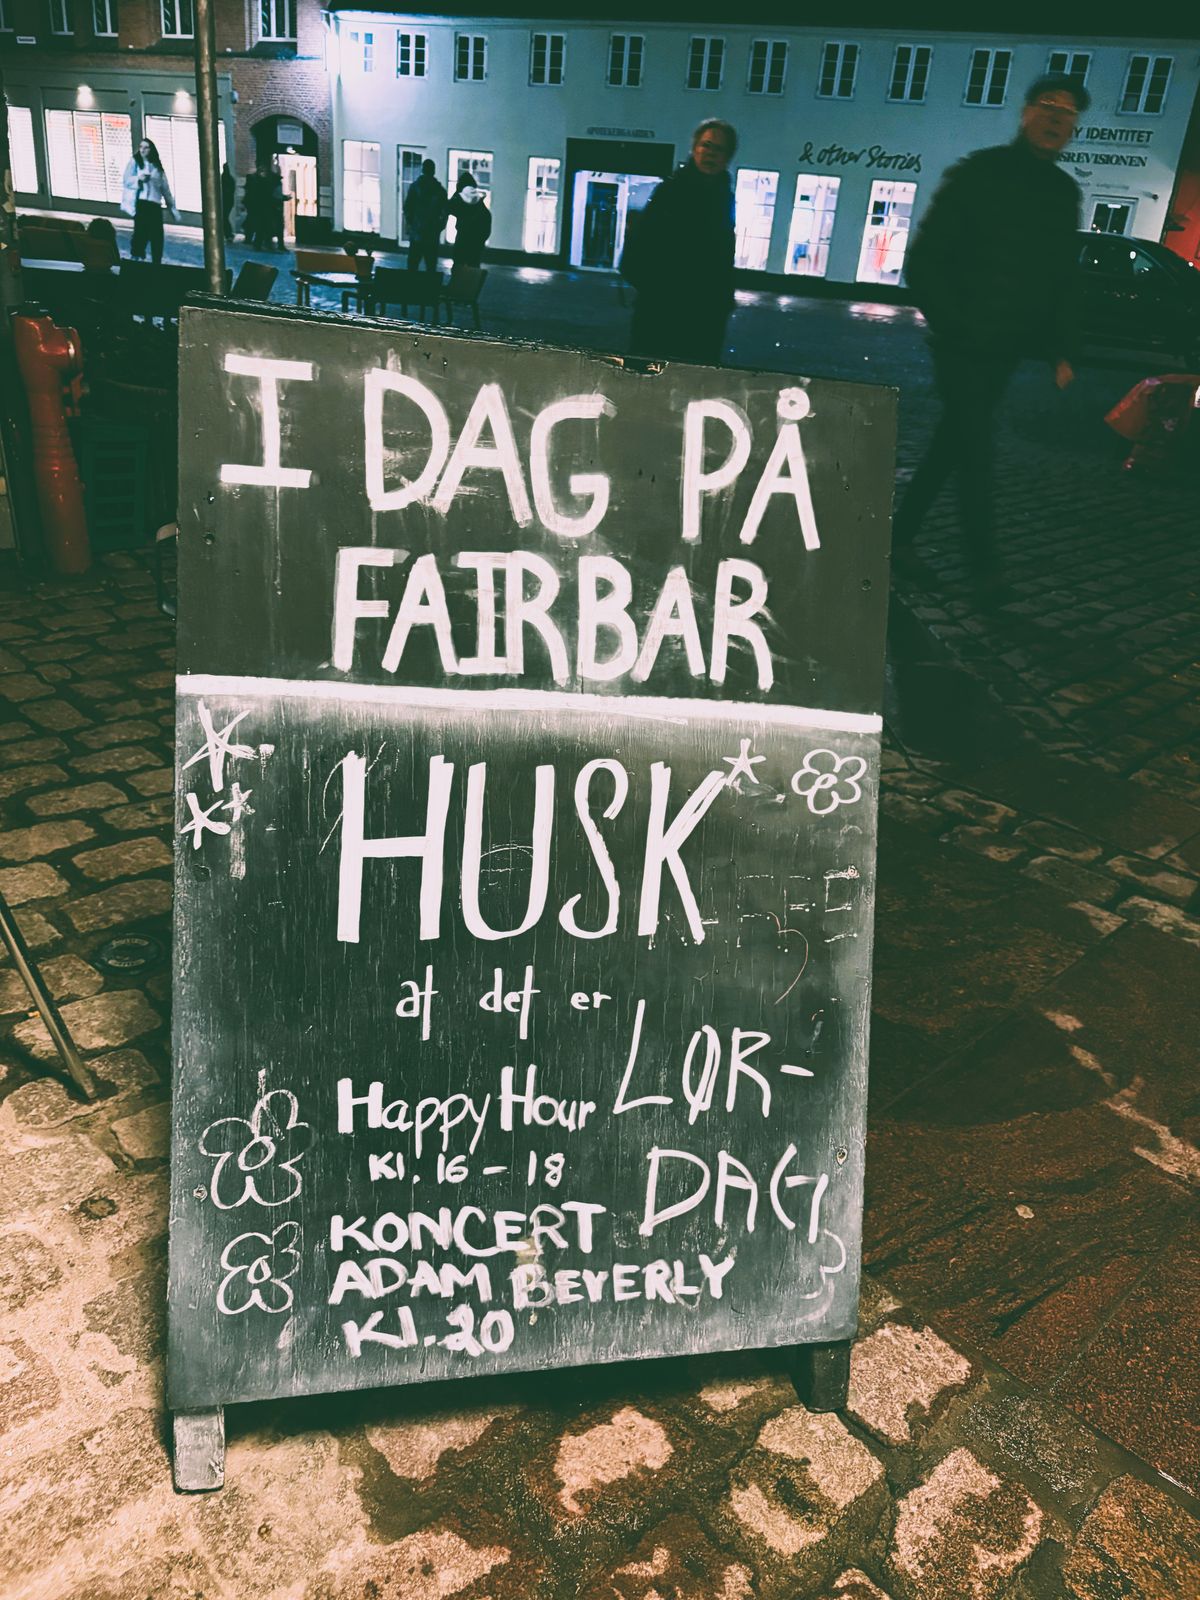 APOTEKERGAARDEN
& other Stories
Y IDENTITET
SREVISIONEN
I DAG PÅ
FAIRBAR
HUSK
at det er
LØR-
DAG
Happy Hour
Kl. 16 - 18
KONCERT
ADAM BEVERLY
Kl. 20